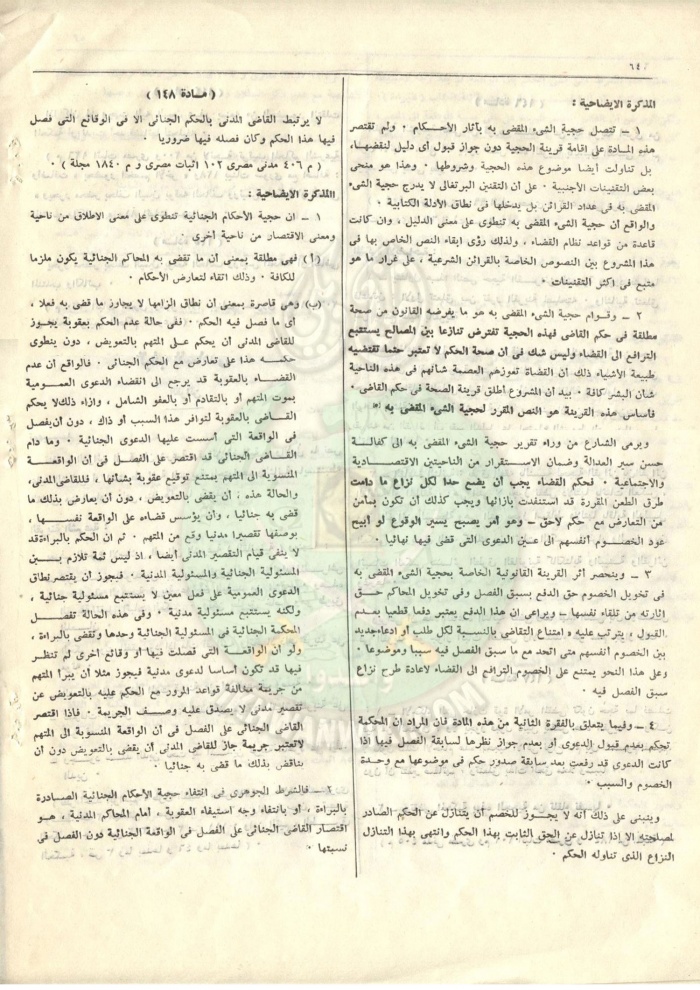 ٦٤
المذكرة الايضاحية :
١ ـ تتصل حجية الشىء المقضى به بآثار الأحكام ٠ ولم تقتصر
هذه المادة على اقامة قرينة الحجية دون جواز قبول أى دليل لنقضها،
بل تناولت أيضا موضوع هذه الحجية وشروطها ٠ وهذا هو منحى
بعض التقنينات الأجنبية ٠ على أن التقنين البرتغالى لا يدرج حجية الشىء
المقضى به فى عداد القرائن بل يدخلها فى نطاق الأدلة الكتابية ٠
والواقع أن حجية الشىء المقضى به تنطوى على معنى الدليل ، وان كانت
قاعدة من قواعد نظام القضاء ، ولذلك رؤى ابقاء النص الخاص بها فى
هذا المشروع بين النصوص الخاصة بالقرائن الشرعية ، على غرار ما هو
متبع فى اكثر التقنينات ٠
٢ ـ وقوام حجية الشىء المقضى به هو ما يفرضه القانون من صحة
مطلقة فى حكم القاضى فهذه الحجية تفترض تنازعا بين المصالح يستتبع
الترافع الى القضاء وليس شك فى أن صحة الحكم لا تعتبر حتما تقتضيه
طبيعة الأشياء ذلك أن القضاة تعوزهم العصمة شأنهم فى هذه الناحية
شأن البشر كافة ٠ بيد أن المشروع أطلق قرينة الصحة فى حكم القاضى ٠
فأساس هذه القرينة هو النص المقرر لحجية الشىء المقضى به
ويرمى الشارع من وراء تقرير حجية الشىء المقضى به الى كفالة
حسن سير العدالة وضمان الاستقرار من الناحيتين الاقتصادية
والاجتماعية ٠ فحكم القضاء يجب أن يضع حدا لكل نزاع ما دامت
طرق الطعن المقررة قد استنفدت بازائها ويجب كذلك أن يكون بمأمن
من التعارض مع حكم لاحق ـ وهو أمر يصبح يسير الوقوع لو أبيح
عود الخصوم أنفسهم الى عين الدعوى التى قضى فيها نهائيا ٠
٣ ـ وينحصر أثر القرينة القانونية الخاصة بحجية الشىء المقضى به
فى تخويل الخصوم حق الدفع بسبق الفصل وفى تخويل المحاكم حق
اثارته من تلقاء نفسها ـ ويراعى ان هذا الدفع يعتبر دفعا قطعيا بعدم
القبول ، يترتب عليه ه امتناع التقاضى بالنسبة لكل طلب أو ادعاء جديد
بين الخصوم أنفسهم متى اتحد مع ما سبق الفصل فيه سببا وموضوعا ٠
وعلى هذا النحو يمتنع على الخصوم الترافع الى القضاء لاعادة طرح نزاع
سبق الفصل فيه ٠
٤ ـ وفيما يتعلق بالفقرة الثانية من هذه المادة فان المراد ان المحكمة
تحكم بعدم قبول الدعوى أو بعدم جواز نظرها لسابقة الفصل فيها اذا
كانت الدعوى قد رفعت بعد سابقة صدور حكم فى موضوعها مع وحدة
الخصوم والسبب ٠
وينبنى على ذلك أنه لا يجوز للخصم أن يتنازل عن الحكم الصادر
لمصلحته الا اذا تنازل عن الحق الثابت بهذا الحكم وانتهى بهذا التنازل
النزاع الذى تناوله الحكم ٠
( مادة ١٤٨ )
لا يرتبط القاضى المدنى بالحكم الجنائى الا فى الوقائع التى فصل
فيها هذا الحكم وكان فصله فيها ضروريا ٠
( م ٤٠٦ مدنى مصرى ١٠٢ اثبات مصرى و م ١٨٤٠ مجلة ) ٠
المذكرة الايضاحية :
١ ـ ان حجية الأحكام الجنائية تنطوى على معنى الاطلاق من ناحية
ومعنى الاقتصار من ناحية أخرى ٠
( أ ) فهى مطلقة بمعنى أن ما تقضى به المحاكم الجنائية يكون ملزما
للكافة ٠ وذلك اتقاء لتعارض الأحكام ٠
(ب) وهى قاصرة بمعنى أن نطاق الزامها لا يجاوز ما قضى به فعلا ،
أى ما فصل فيه الحكم ٠ ففى حالة عدم الحكم بعقوبة يجوز
للقاضى المدنى أن يحكم على المتهم بالتعويض ، دون أن ينطوى
حكمه هذا على تعارض مع الحكم الجنائى ٠ فالواقع أن عدم
القضاء بالعقوبة قد يرجع الى انقضاء الدعوى العمومية
بموت المتهم أو بالتقادم أو بالعفو الشامل ، وازاء ذلك لا يحكم
القاضى بالعقوبة لتوافر هذا السبب أو ذاك ، دون أن يفصل
فى الواقعة التى أسست عليها الدعوى الجنائية ٠ وما دام
القاضى الجنائى قد اقتصر على الفصل فى أن الواقعة
المنسوبة الى المتهم يمتنع توقيع عقوبة بشأنها ، فللقاضى المدنى،
والحالة هذه ، أن يقضى بالتعويض ، دون أن يعارض بذلك ما
قضى به جنائيا ، وأن يؤسس قضاءه على الواقعة نفسها ،
بوصفها تقصيرا مدنيا وقع من المتهم ٠ ثم ان الحكم بالبراءة قد
لا ينفى قيام التقصير المدنى أيضا ، اذ ليس ثمة تلازم بين
المسئولية الجنائية والمسئولية المدنية ٠ فيجوز أن يقتصر نطاق
الدعوى العمومية على فعل معين لا يستتبع مسئولية جنائية ،
ولكنه يستتبع مسئولية مدنية ٠ وفى هذه الحالة تفصل
المحكمة الجنائية فى المسئولية الجنائية وحدها وتقضى بالبراءة ،
ولو ان الواقعة التى فصلت فيها أو وقائع أخرى لم تنظر
فيها قد تكون أساسا لدعوى مدنية فيجوز مثلا أن يبرأ المتهم
من جريمة مخالفة قواعد المرور مع الحكم عليه بالتعويض عن
تقصير مدنى لا يصدق عليه وصف الجريمة ٠ فاذا اقتصر
القاضى الجنائى على الفصل فى أن الواقعة المنسوبة الى المتهم
لاتعتبر جريمة جاز للقاضى المدنى أن يقضى بالتعويض دون أن
يناقض بذلك ما قضى به جنائيا ٠
٢ ـ فالشرط الجوهرى فى انتفاء حجية الأحكام الجنائية الصادرة
بالبراءة ، أو بانتفاء وجه استيفاء العقوبة ، أمام المحاكم المدنية ، هو
اقتصار القاضى الجنائى على الفصل فى الواقعة الجنائية دون الفصل فى
نسبتها ٠